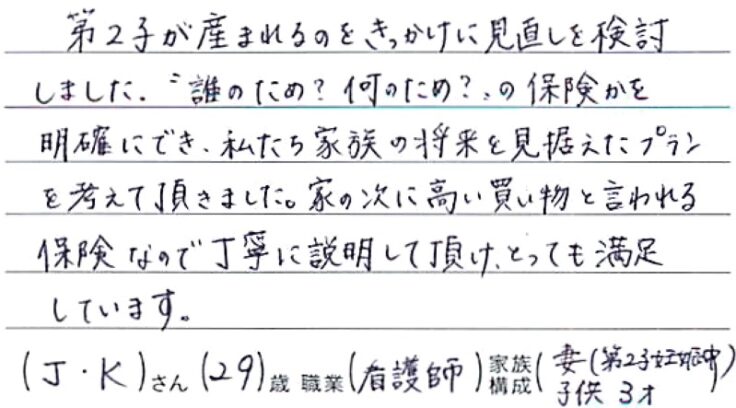 第2子が産まれるのをきっかけに見直しを検討
しました。〝誰のため？何のため？〟の保険かを
明確にでき、私たち家族の将来を見据えたプラン
を考えて頂きました。家の次に高い買い物と言われる
保険なので丁寧に説明して頂け、とっても満足
しています。
(J・K)さん (29)歳 職業(看護師)家族構成(妻(第2子妊娠中)
子供 3才